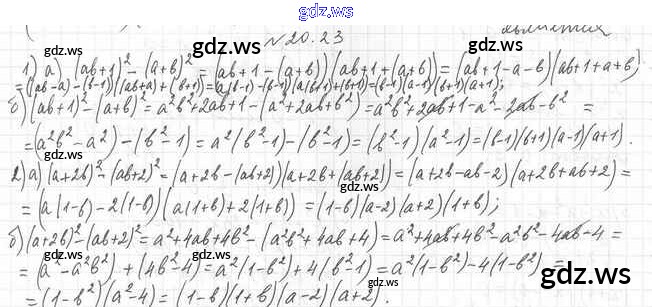 gdz.ws
gdz.ws gdz.ws
№20.23
gdz.ws gdz.ws
1) а) (ab+1)²-(a+b)² = (ab+1-(a+b))(ab+1+(a+b)) = (ab+1-a-b)(ab+1+a+b)
= ((ab-a)-(b-1))((ab+a)+(b+1)) = (a(b-1)-(b-1))(a(b+1)+(b+1)) = (b-1)(a-1)(b+1)(a+1);
б) (ab+1)²-(a+b)² = a²b²+2ab+1-(a²+2ab+b²) = a²b²+2ab+1-a²-2ab-b² =
= (a²b²-a²)-(b²-1) = a²(b²-1)-(b²-1) = (b²-1)(a²-1) = (b-1)(b+1)(a-1)(a+1).
gdz.ws gdz.ws
2) а) (a+2b)²-(ab+2)² = (a+2b-(ab+2))(a+2b+(ab+2)) = (a+2b-ab-2)(a+2b+ab+2) =
gdz.ws
= (a(1-b)-2(1-b))(a(1+b)+2(1+b)) = (1-b)(a-2)(a+2)(1+b);
gdz.ws gdz.ws
б) (a+2b)²-(ab+2)² = a²+4ab+4b²-(a²b²+4ab+4) = a²+4ab+4b²-a²b²-4ab-4 =
= (a²-a²b²)+(4b²-4) = a²(1-b²)+4(b²-1) = a²(1-b²)-4(1-b²) =
gdz.ws gdz.ws gdz.ws
= (1-b²)(a²-4) = (1-b)(1+b)(a-2)(a+2).